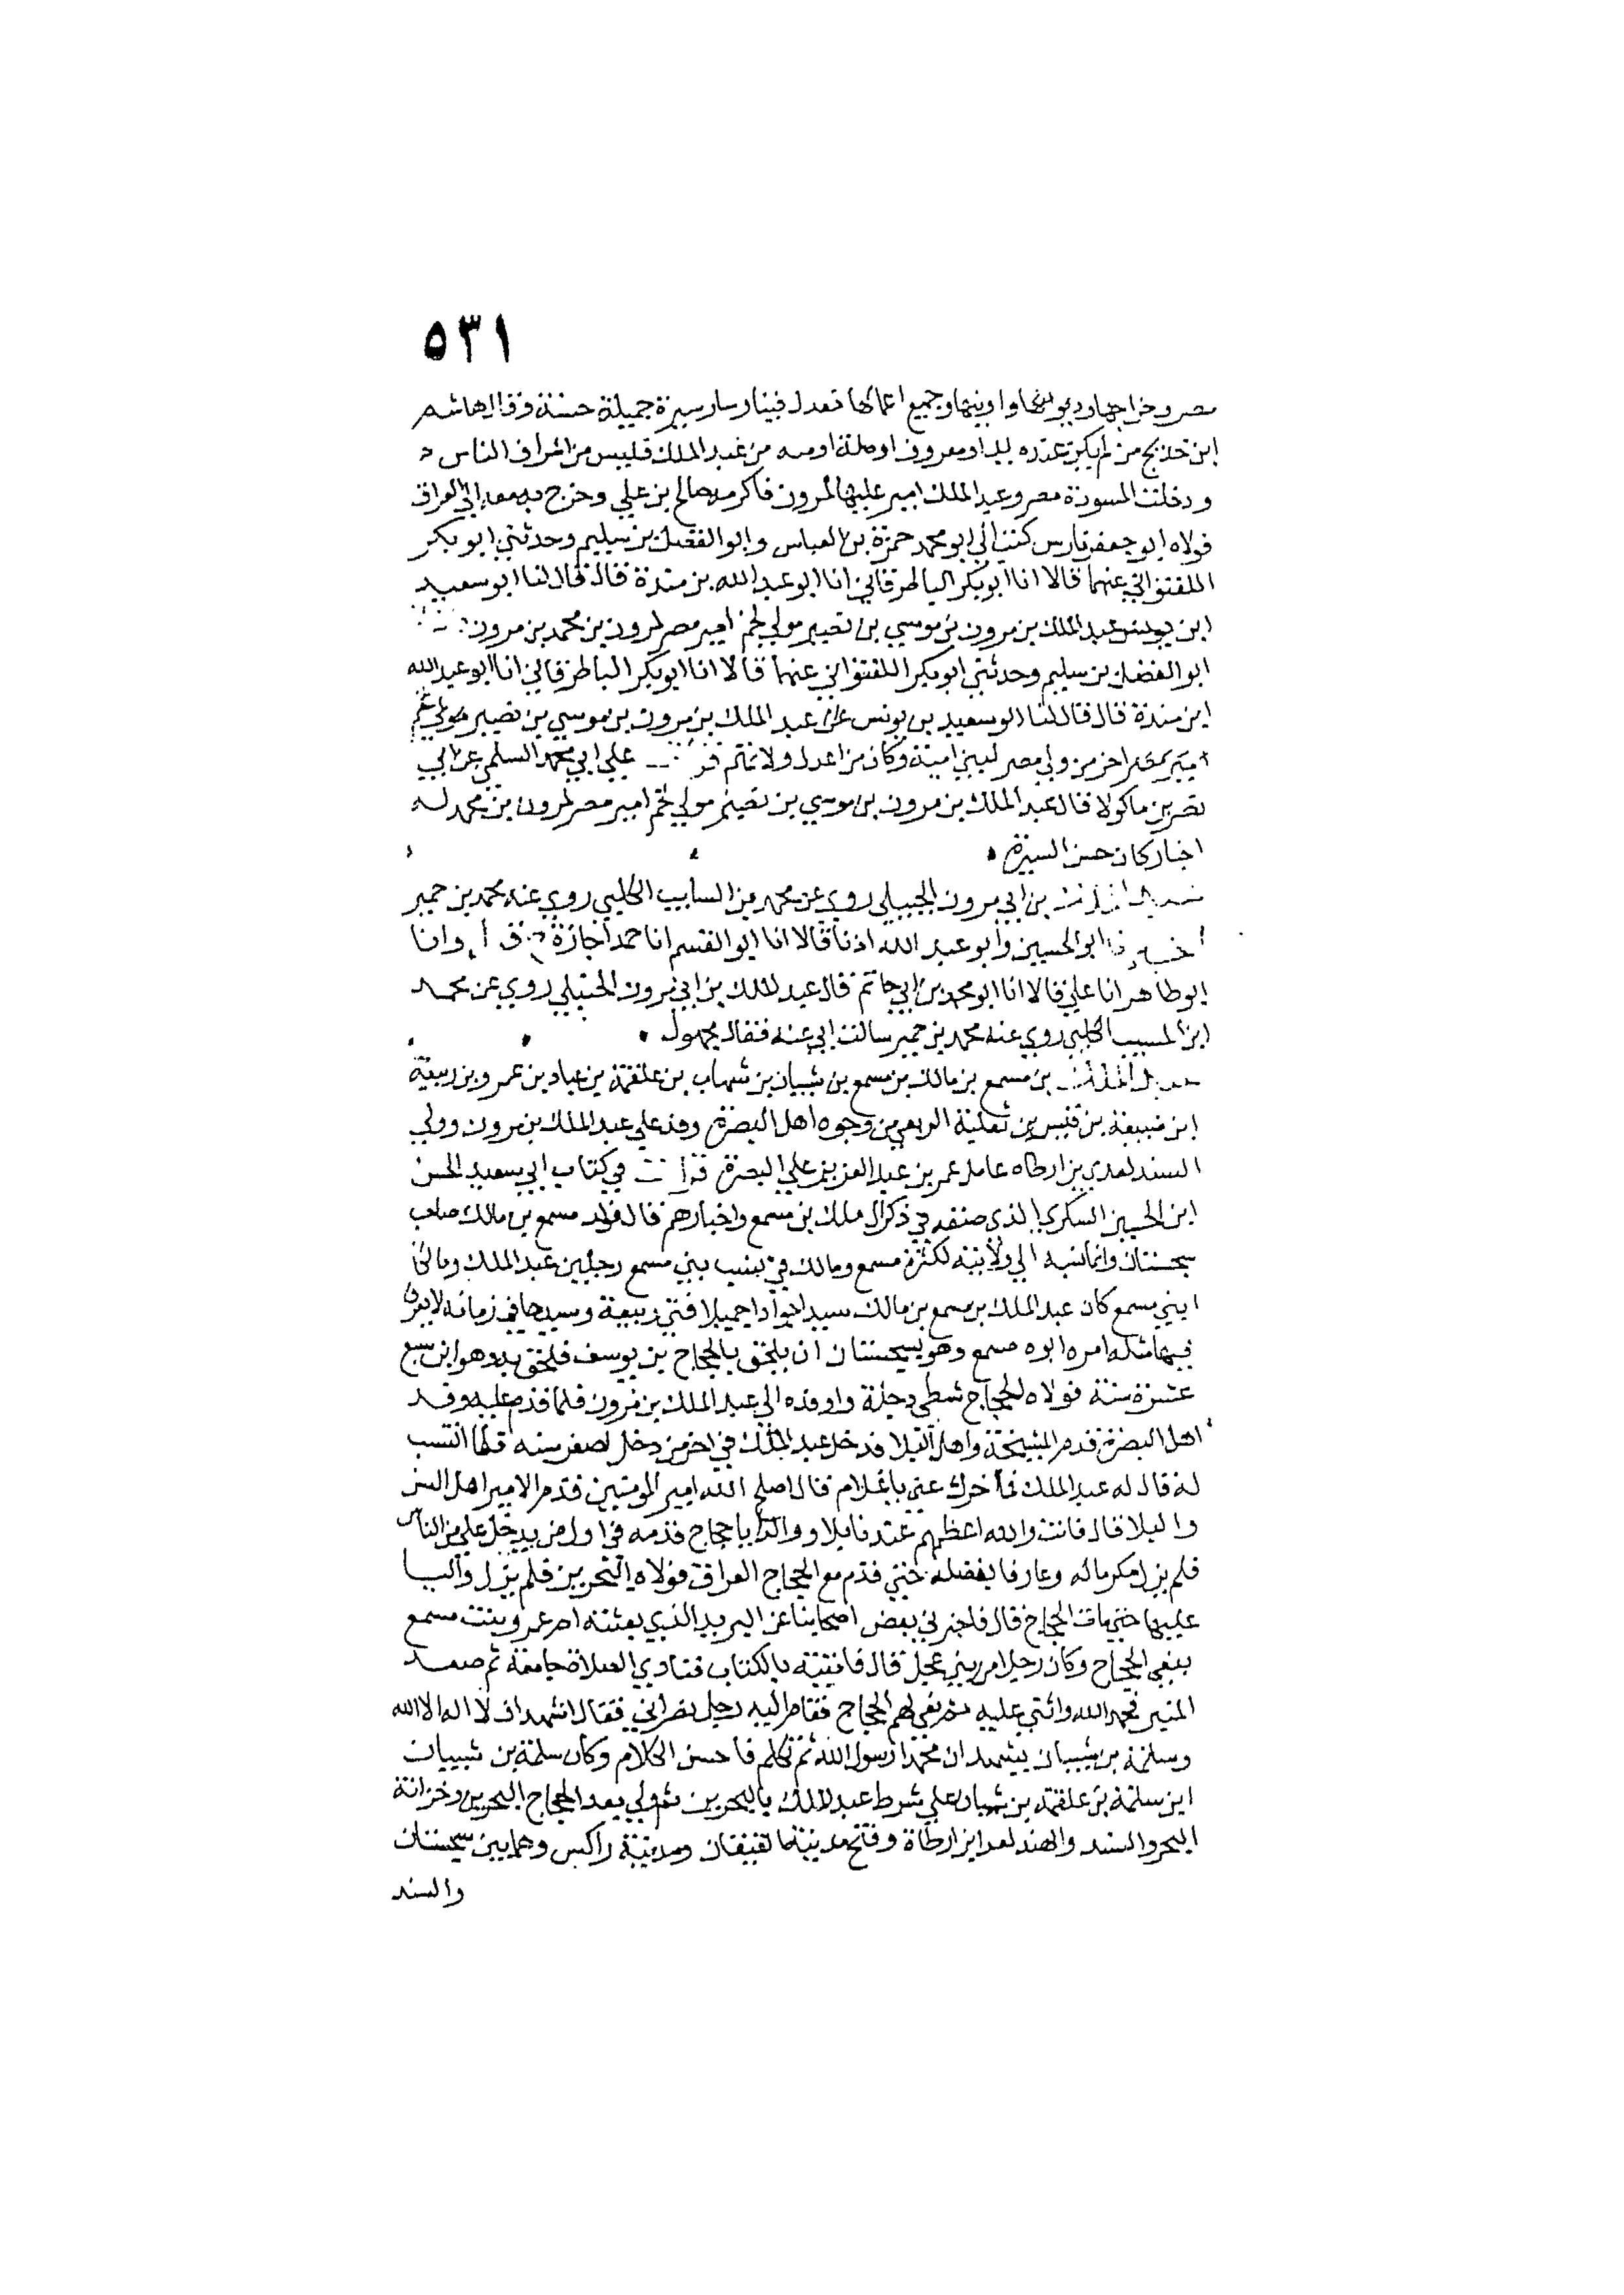 ٥٣١
مصر وخراجها ودیوانها وجميع اعمالها فعدل فينا وسار سيرة جميلة حسنة وقال هاشم
ابن خديج من لم يكن عنده يد او معروف او من عبد الملك فليس من اشراف الناس
ودخلت المسودة مصر وعبد الملك امير عليها لمرون فاكرمه صالح بن علي وخرج به معه الي العراق
فولاه ابو جعفر فارس كتب الي ابو محمد حمزة بن العباس وابو الفضل بن سليم وحدثني ابو بكر
اللفتواني عنهما قالا انا ابو بكر الباطرقاني انا ابو عبد الله بن مندة قال قال لنا ابو سعيد
ابن يونس عبد الملك بن مرون بن موسي بن نصير مولي لخم امير مصر لمرون بن محمد بن مرون
ابو الفضل بن سليم وحدثني ابو بكر اللفتواني عنهما قالا انا ابو بكر الباطرقاني انا ابو عبد الله
ابن مندة قال قال لنا ابو سعيد بن يونس عبد الملك بن مرون بن موسي بن نصير مولي لخم
امير مصر اخر من ولي مصر لبني امية وكان من اعدل ولاتهم علي ابي محمد السلمي عن ابي
نصر بن ماكولا قال عبد الملك بن مرون بن موسي بن نصير مولي لخم امير مصر لمرون بن محمد له
اخبار كان حسن السيرة
بن ابي مرون الجبيلي روي عن محمد بن السايب الكلبي روي عنه محمد بن حمير
ابو الحسين وابو عبد الله اذنا قالا انا ابو القسم انا حمد اجازة ح ق ا وانا
ابو طاهر انا علي قالا انا ابو محمد بن ابي حاتم قال عبد الملك بن ابي مرون روي عن محمد
ابن المسيب الكلبي روي عنه محمد بن حمير سالت ابي عنه فقال مجهول
عبد الملك بن مسمع بن مالك بن مسمع بن شيبان بن شهاب بن علقمة بن عباد بن عمرو بن ربيعة
ابن ضبيعة بن قيس بن ثعلبة الربعي من وجوه اهل البصرة وفد علي عبد الملك بن مرون وولي
السند لعدي بن ارطاه عامل عمر بن عبد العزيز علي البصرة قرات في كتاب ابي سعيد الحسن
ابن الحسين السكري الذي صنفه في ذكر ال ملك بن مسمع واخبارهم قال فولد مسمع بن مالك صاحب
سجستان وانما نسبه الي ولايته لكثرة مسمع ومالك في نسب بني مسمع رجلين عبد الملك ومالكا
ابني مسمع كان عبد الملك بن مسمع بن مالك سيدا جوادا جميلا فتي ربيعة وسيدها في زمانه لا يعرف
فيها مثله امره ابوه مسمع وهو بسجستان ان يلحق بالحجاج بن يوسف فلحق به وهو ابن سبع
عشرة سنة فولاه الحجاج شطي دجلة واوفده الي عبد الملك بن مرون فلما قدم عليه وفد
اهل البصرة قدم المشيخة واهل البلا فدخل عبد الملك في اخر من دخل لصغر سنه فلما انتسب
له قال له عبد الملك فما اخرك عني يا غلام قال اصلح الله امير المومنين قدم الامير اهل السن
والبلا قال فانت والله اعظمهم عندنا بلا ووالدا يا حجاج قدمه في اول من يدخل علي من الناس
فلم يزل مكرما له وعارفا بفضله حتي قدم مع الحجاج العراق فولاه البحرين فلم يزل واليا
عليها حتي مات الحجاج قال فاخبرني بعض اصحابنا عن البريد الذي بعثته ام عمرو بنت مسمع
بنعي الحجاج وكان رجلا من بني عجل قال فاتيته بالكتاب فنادي الصلاة جامعة ثم صعد
المنبر فحمد الله واثني عليه ثم نعي لهم الحجاج فقام اليه رجل نصراني فقال اشهد ان لا اله الا الله
وسلمة بن شيبان يشهد ان محمدا رسول الله ثم تكلم فاحسن الكلام وكان سلمة بن شيبان
ابن سلمة بن علقمة بن شهاب علي شرط عبد الملك بالبحرين ثم ولي بعد الحجاج البحرين وخزانة
البحر والسند والهند لعدي ابن ارطاة وفتح مدينة القيقان ومدينة راكس وهما بين سجستان
والسند